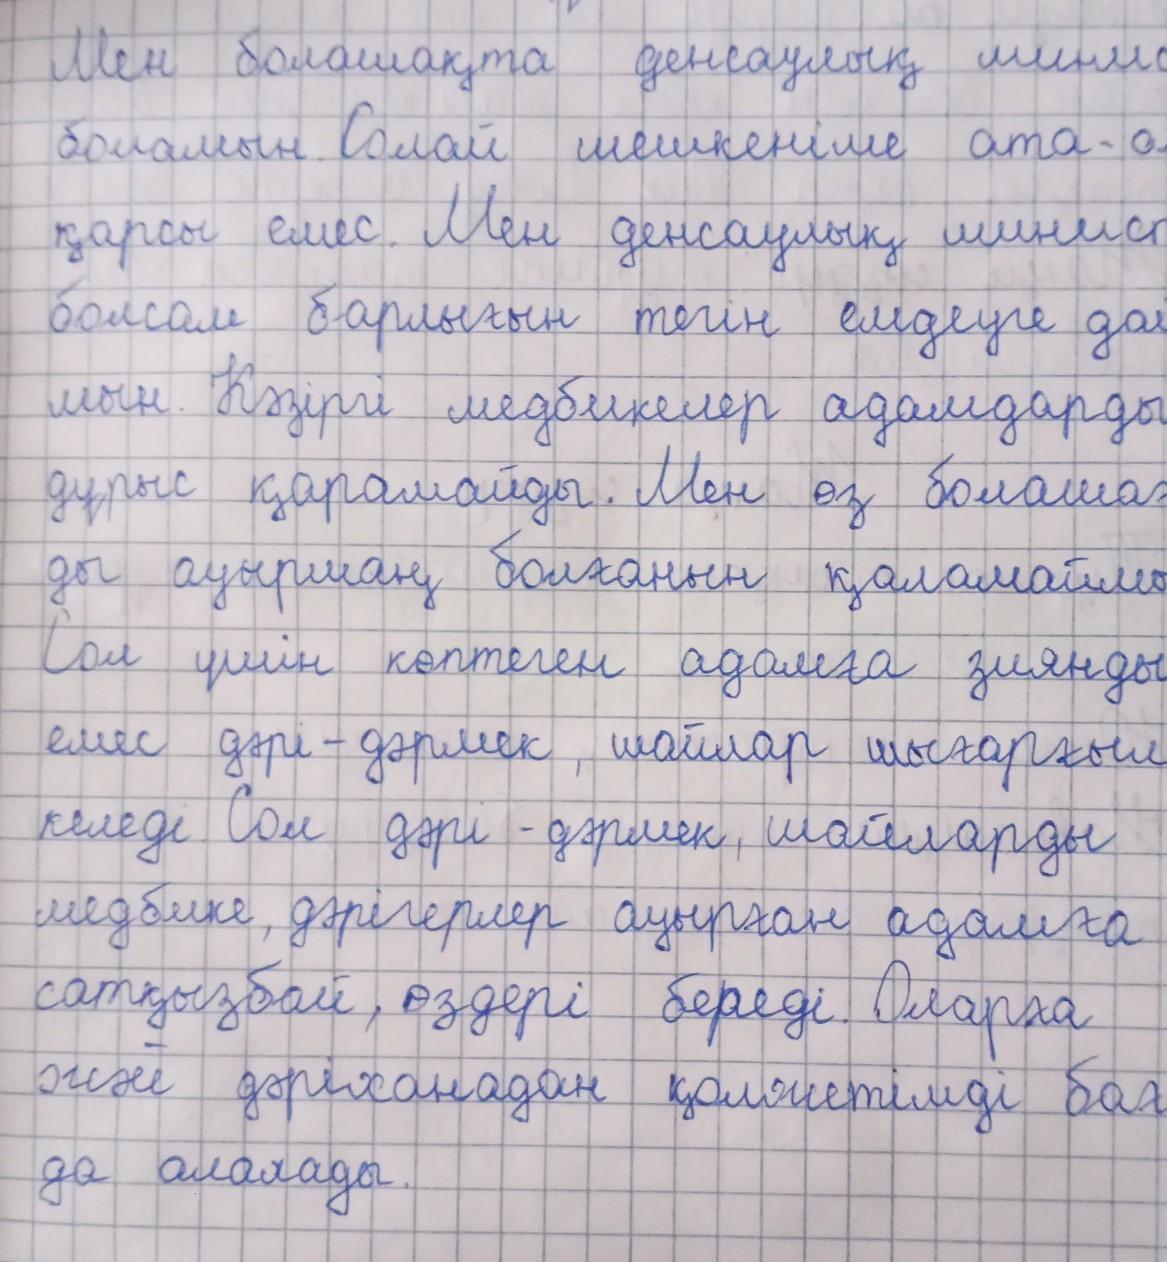 Мен болашақта денсаулық минис
боламын. Солай шешкеніме ата-а
қарсы емес. Мен денсаулық минист
болсам барлығын тегін емдеуге дай
мын. Кәзіргі медбикелер адамдарды
дұрыс қарамайды. Мен өз болашағ
ды ауыршаң болғанын қаламаймы
Сол үшін көптеген адамға зиянды
емес дәрі-дәрмек, шайлар шығарғым
келеді Сол дәрі-дәрмек, шайларды
медбике, дәрігерлер ауырған адамға
сатқызбай, өздері береді. Оларға
жәй дәріханадан қолжетімді баға
да алалады.